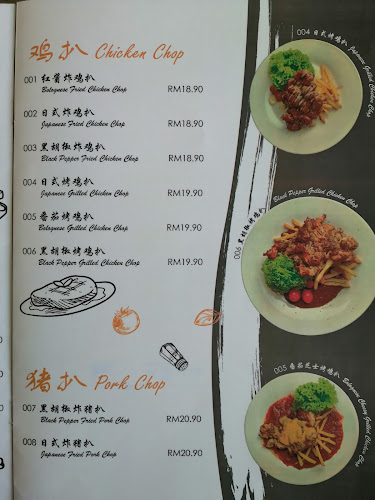 鸡扒 Chicken Chop
001 红酱炸鸡扒
Bolognese Fried Chicken Chop RM18.90
002 日式炸鸡扒
Japanese Fried Chicken Chop RM18.90
003 黑胡椒炸鸡扒
Black Pepper Fried Chicken Chop RM18.90
004 日式烤鸡扒
Japanese Grilled Chicken Chop RM19.90
005 番茄烤鸡扒
Bolognese Grilled Chicken Chop RM19.90
006 黑胡椒烤鸡扒
Black Pepper Grilled Chicken Chop RM19.90
猪扒 Pork Chop
007 黑胡椒炸猪扒
Black Pepper Fried Pork Chop RM20.90
008 日式炸猪扒
Japanese Fried Pork Chop RM20.90
004 日式烤鸡扒 Japanese Grilled Chicken Chop
006 黑胡椒烤鸡扒 Black Pepper Grilled Chicken Chop
005 番茄芝士烤鸡扒 Bolognese Cheesy Grilled Chicken Chop